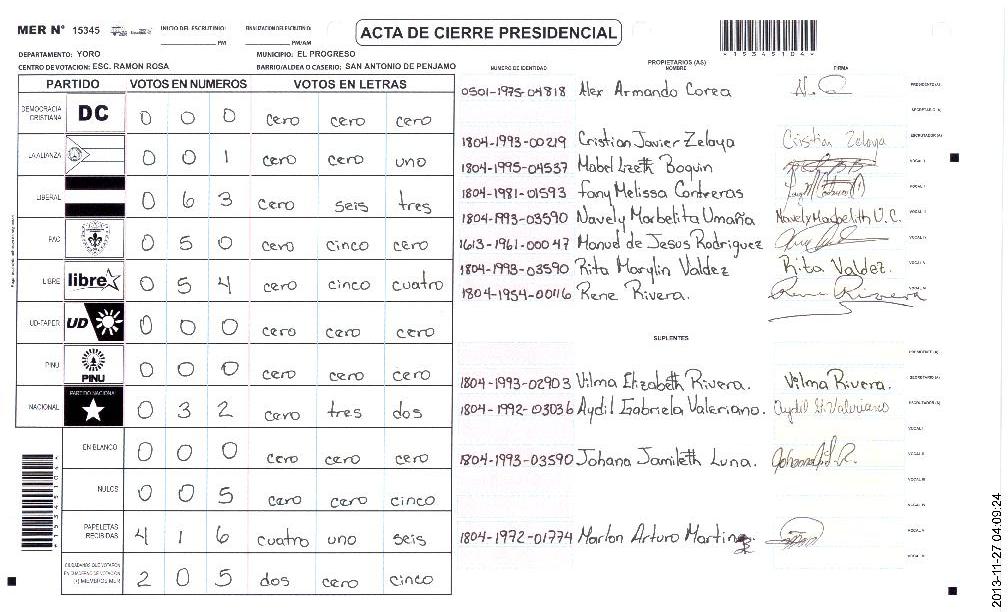 MER N° 15345 INICIO DEL ESCRUTINIO: PM FINALIZACION ESCRUTINIO: PM/AM
ACTA DE CIERRE PRESIDENCIAL
*15345104*
DEPARTAMENTO: YORO MUNICIPIO: EL PROGRESO
CENTRO DE VOTACION: ESC. RAMON ROSA BARRIO/ALDEA O CASERIO: SAN ANTONIO DE PENJAMO
PARTIDO VOTOS EN NUMEROS VOTOS EN LETRAS
DEMOCRACIA CRISTIANA DC 0 0 0 cero cero cero
LA ALIANZA 0 0 1 cero cero uno
LIBERAL 0 6 3 cero seis tres
PAC 0 5 0 cero cinco cero
LIBRE libre 0 5 4 cero cinco cuatro
UD-FAPER UD 0 0 0 cero cero cero
PINU PINU 0 0 0 cero cero cero
NACIONAL PARTIDO NACIONAL 0 3 2 cero tres dos
EN BLANCO 0 0 0 cero cero cero
NULOS 0 0 5 cero cero cinco
PAPELETAS RECIBIDAS 4 1 6 cuatro uno seis
CIUDADANOS QUE VOTARON EN CUADERNO DE VOTACION (+) MIEMBROS MER 2 0 5 dos cero cinco
PROPIETARIOS (AS)
NUMERO DE IDENTIDAD NOMBRE FIRMA
0501-1975-04818 Alex Armando Corea PRESIDENTE (A)
SECRETARIO (A)
1804-1993-00219 Cristian Javier Zelaya Cristian Zelaya ESCRUTADOR (A)
1804-1995-04537 Mabel Lizeth Boquin VOCAL I
1804-1981-01593 Fany Melissa Contreras
1804-1993-03590 Navely Marbelita Umaña Navely Marbelith U.C.
1613-1961-00047 Manuel de Jesus Rodriguez
1804-1993-03590 Rita Marylin Valdez Rita Valdez.
1804-1954-00116 Rene Rivera. Rene Rivera
SUPLENTES
PRESIDENTE (A)
1804-1993-02903 Vilma Elizabeth Rivera. Vilma Rivera. SECRETARIO (A)
1804-1992-03036 Aydil Gabriela Valeriano. Aydil G. Valeriano ESCRUTADOR (A)
1804-1993-03590 Johana Jamileth Luna.
1804-1972-01774 Marlon Arturo Martinez
2013-11-27 04:09:24